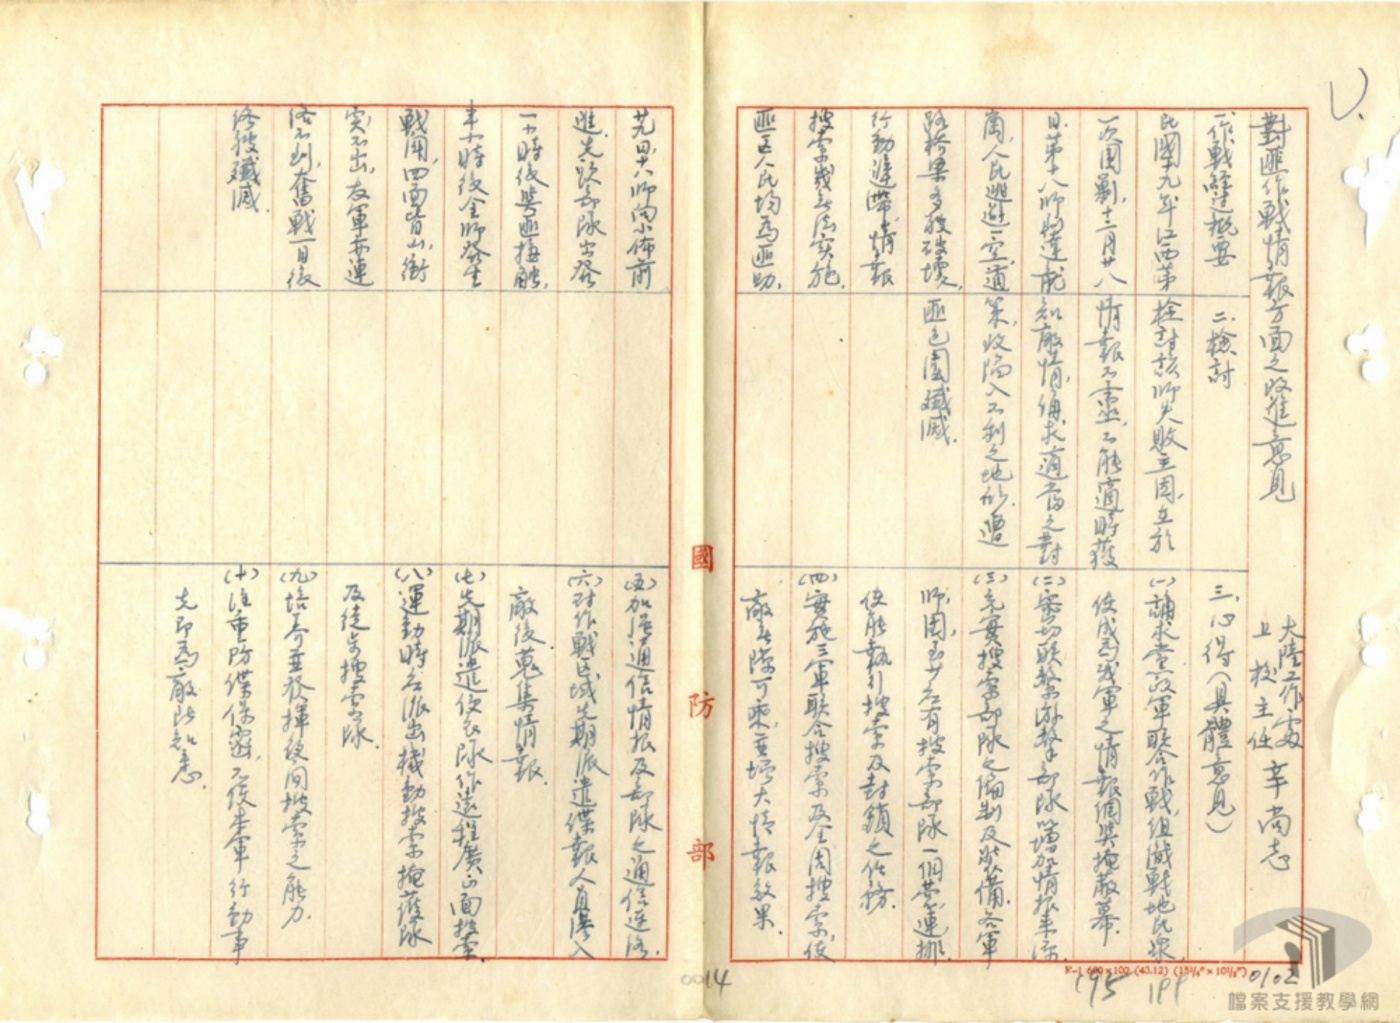 對匪作戰情報方面之改進意見
大陸工作處
上校主任 辛尚志
一、作戰經過概要
民國十九年江西第
一次圍剿，十二月廿八
日，第十八師將達龍
岡，人民逃避一空，道
路橋梁多被破壞，
行動遲滯，情報
搜索幾無法實施，
匪區人民均為匪助，
廿九日，十八師向小佈前
進，先頭部隊出發
一小時後與匪接觸，
半小時後全師發生
戰鬥，四面皆山，衝
突不出，友軍亦連
絡不到，奮戰一日後
終被殲滅。
二、檢討
檢討該師失敗主因，在於
情報不靈，不能適時獲
知敵情，俾求適當之對
策，致陷入不利之地形，遭
匪包圍殲滅。
三、心得（具體意見）
(一)講求黨政軍聯合作戰，組織戰地民眾
使成為我軍之情報網與掩蔽幕。
(二)密切聯繫游擊部隊，增加情報來源
(三)充實搜索部隊之編制及裝備，各軍
師，團，至少應有搜索部隊一個營，連，排，
使能執行搜索及封鎖之任務。
(四)實施三軍聯合搜索及全周搜索，使
敵無隙可乘，並增大情報效果。
(五)加強通信情報及部隊之通信連絡。
(六)對作戰區域先期派遣諜報人員滲入
敵後蒐集情報。
(七)先期派遣便衣隊作遠程廣正面搜索
(八)運動時應派出機動搜索掩護隊
及徒步搜索隊。
(九)培養並發揮夜間搜索之能力。
(十)注重防諜保密，不使本軍行動事
先即為敵所知悉。
國防部
0014
F-1 600×100 (43.12) (15⅛"×10⅛")
195
0102
檔案支援教學網